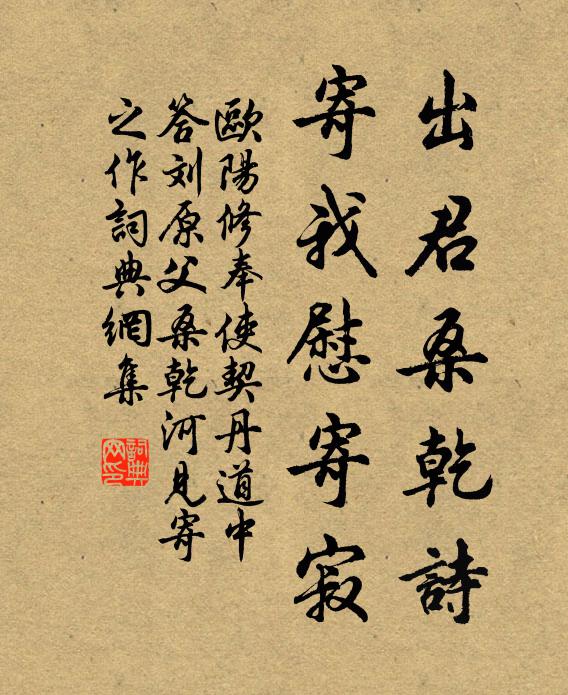 出君桑乾詩
寄我慰寄寂
歐陽修奉使契丹道中
答刘原父桑乾河見寄
之作詞典網集
詞典
网印